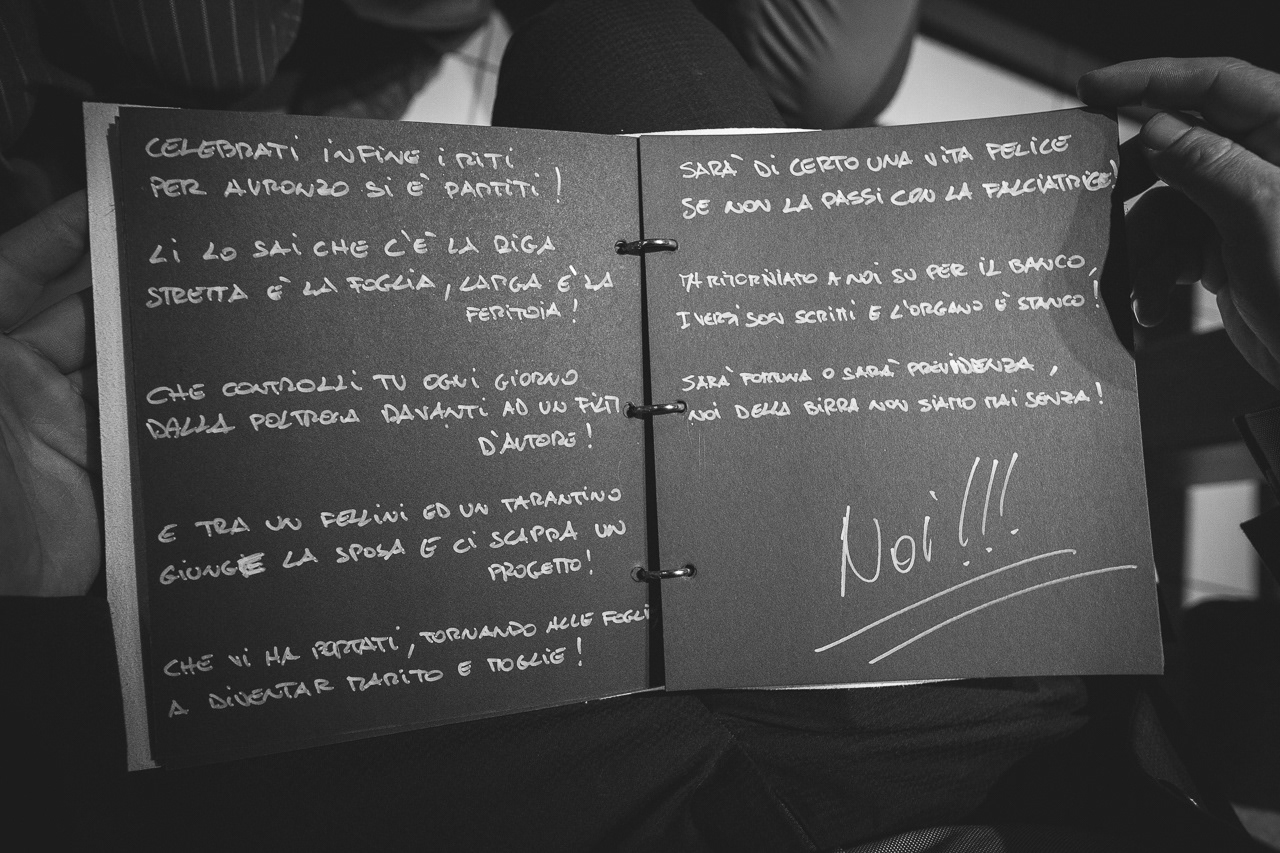 CELEBRATI INFINE I RITI
PER AURONZO SI E' PARTITI!
LI LO SAI CHE C'È LA RIGA
STRETTA È LA FOGLIA, LARGA È LA
FERITOIA!
CHE CONTROLLI TU OGNI GIORNO
DALLA POLTRONA DAVANTI AD UN FILM
D'AUTORE!
E TRA UN FELLINI ED UN TARANTINO
GIUNGE LA SPOSA E CI SCAPPA UN
PROGETTO!
CHE VI HA PORTATI, TORNANDO ALLE FOGLI
A DIVENTAR MARITO E MOGLIE!
SARÀ DI CERTO UNA VITA FELICE
SE NON LA PASSI CON LA FALCIATRICE!
MA RITORNIAMO A NOI SU PER IL BANCO,
I VERSI SON SCRITTI E L'ORGANO È STANCO!
SARÀ FORTUNA O SARÀ PREVIDENZA,
NOI DELLA BIRRA NON SIAMO MAI SENZA!
Noi!!!